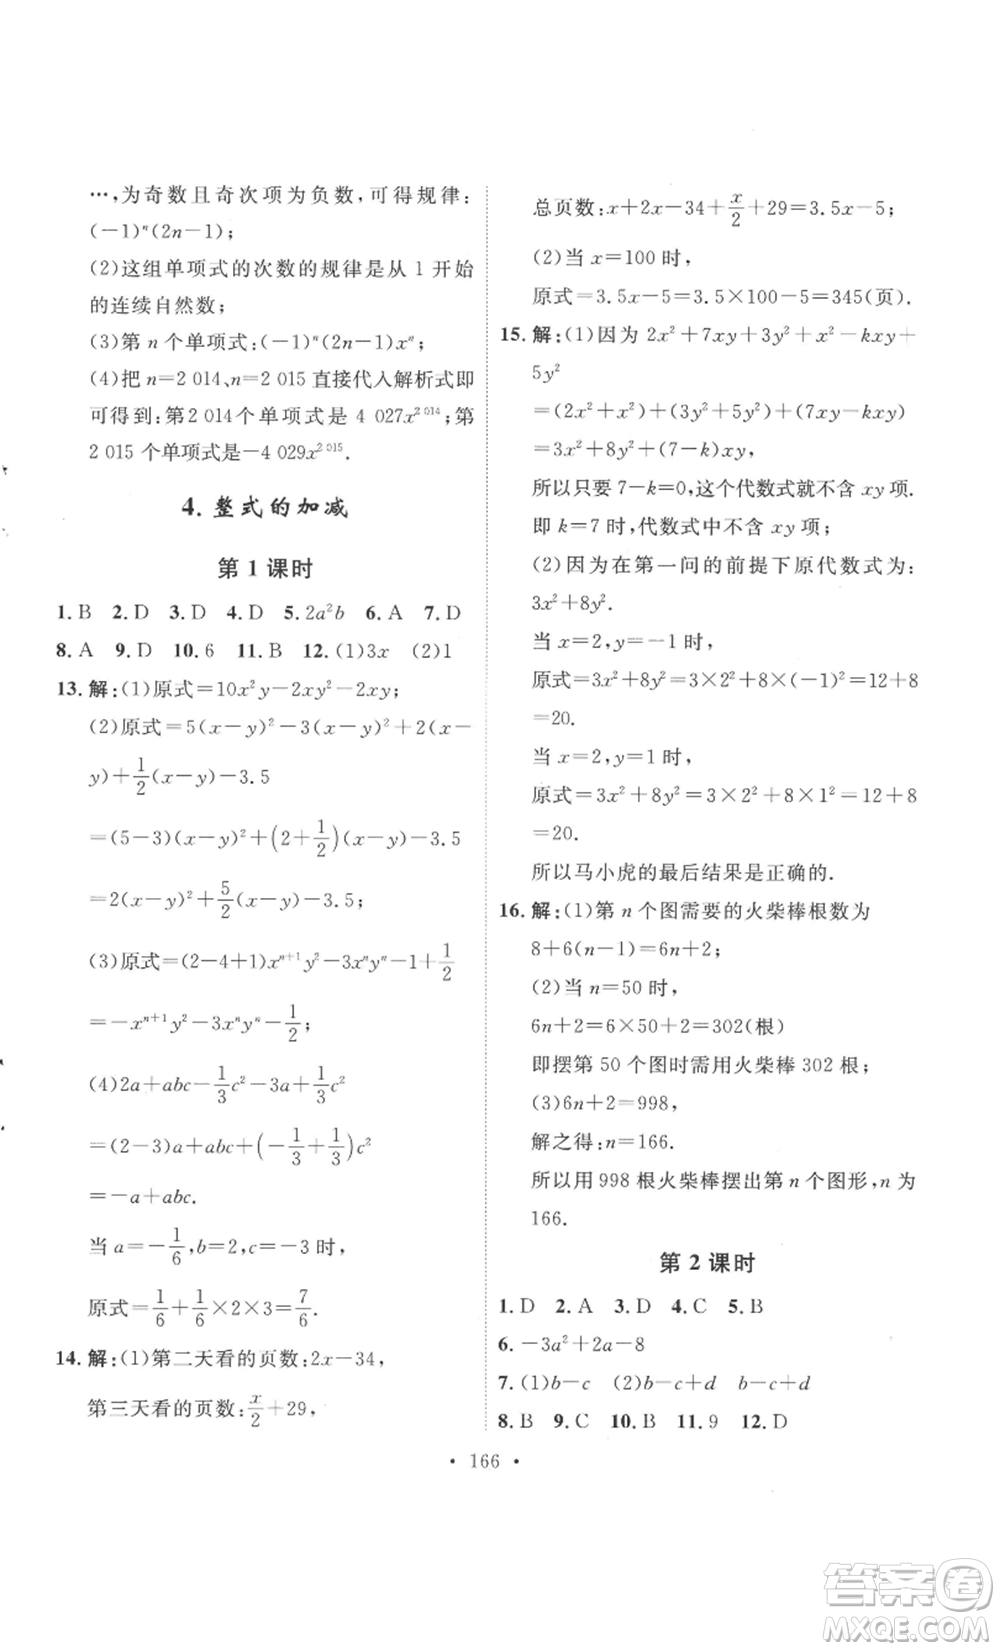 …,为奇数且奇次项为负数,可得规律:
(-1)ⁿ(2n-1);
(2)这组单项式的次数的规律是从 1 开始
的连续自然数;
(3)第 n 个单项式:(-1)ⁿ(2n-1)xⁿ;
(4)把 n=2 014、n=2 015 直接代入解析式即
可得到:第2 014个单项式是 4 027x²⁰¹⁴;第
2 015 个单项式是-4 029x²⁰¹⁵.
4. 整式的加减
第 1 课时
1. B 2. D 3. D 4. D 5. 2a²b 6. A 7. D
8. A 9. D 10. 6 11. B 12. (1)3x (2)1
13. 解:(1)原式=10x²y-2xy²-2xy;
(2)原式=5(x-y)²-3(x-y)²+2(x-
y)+1/2(x-y)-3.5
=(5-3)(x-y)²+(2+1/2)(x-y)-3.5
=2(x-y)²+5/2(x-y)-3.5;
(3)原式=(2-4+1)xⁿ⁺¹y²-3xⁿyⁿ-1+1/2
=-xⁿ⁺¹y²-3xⁿyⁿ-1/2;
(4)2a+abc-1/3c²-3a+1/3c²
=(2-3)a+abc+(-1/3+1/3)c²
=-a+abc.
当 a=-1/6,b=2,c=-3 时,
原式=1/6+1/6×2×3=7/6.
14. 解:(1)第二天看的页数:2x-34,
第三天看的页数:x/2+29,
总页数:x+2x-34+x/2+29=3.5x-5;
(2)当 x=100 时,
原式=3.5x-5=3.5×100-5=345(页).
15. 解:(1)因为 2x²+7xy+3y²+x²-kxy+
5y²
=(2x²+x²)+(3y²+5y²)+(7xy-kxy)
=3x²+8y²+(7-k)xy,
所以只要 7-k=0,这个代数式就不含 xy项.
即 k=7 时,代数式中不含 xy 项;
(2)因为在第一问的前提下原代数式为:
3x²+8y².
当 x=2,y=-1 时,
原式=3x²+8y²=3×2²+8×(-1)²=12+8
=20.
当 x=2,y=1 时,
原式=3x²+8y²=3×2²+8×1²=12+8
=20.
所以马小虎的最后结果是正确的.
16. 解:(1)第 n 个图需要的火柴棒根数为
8+6(n-1)=6n+2;
(2)当 n=50 时,
6n+2=6×50+2=302(根)
即摆第 50 个图时需用火柴棒 302 根;
(3)6n+2=998,
解之得:n=166.
所以用 998 根火柴棒摆出第 n 个图形,n 为
166.
第 2 课时
1. D 2. A 3. D 4. C 5. B
6. -3a²+2a-8
7. (1)b-c (2)b-c+d b-c+d
8. B 9. C 10. B 11. 9 12. D
• 166 •
答案圈
MXQE.COM